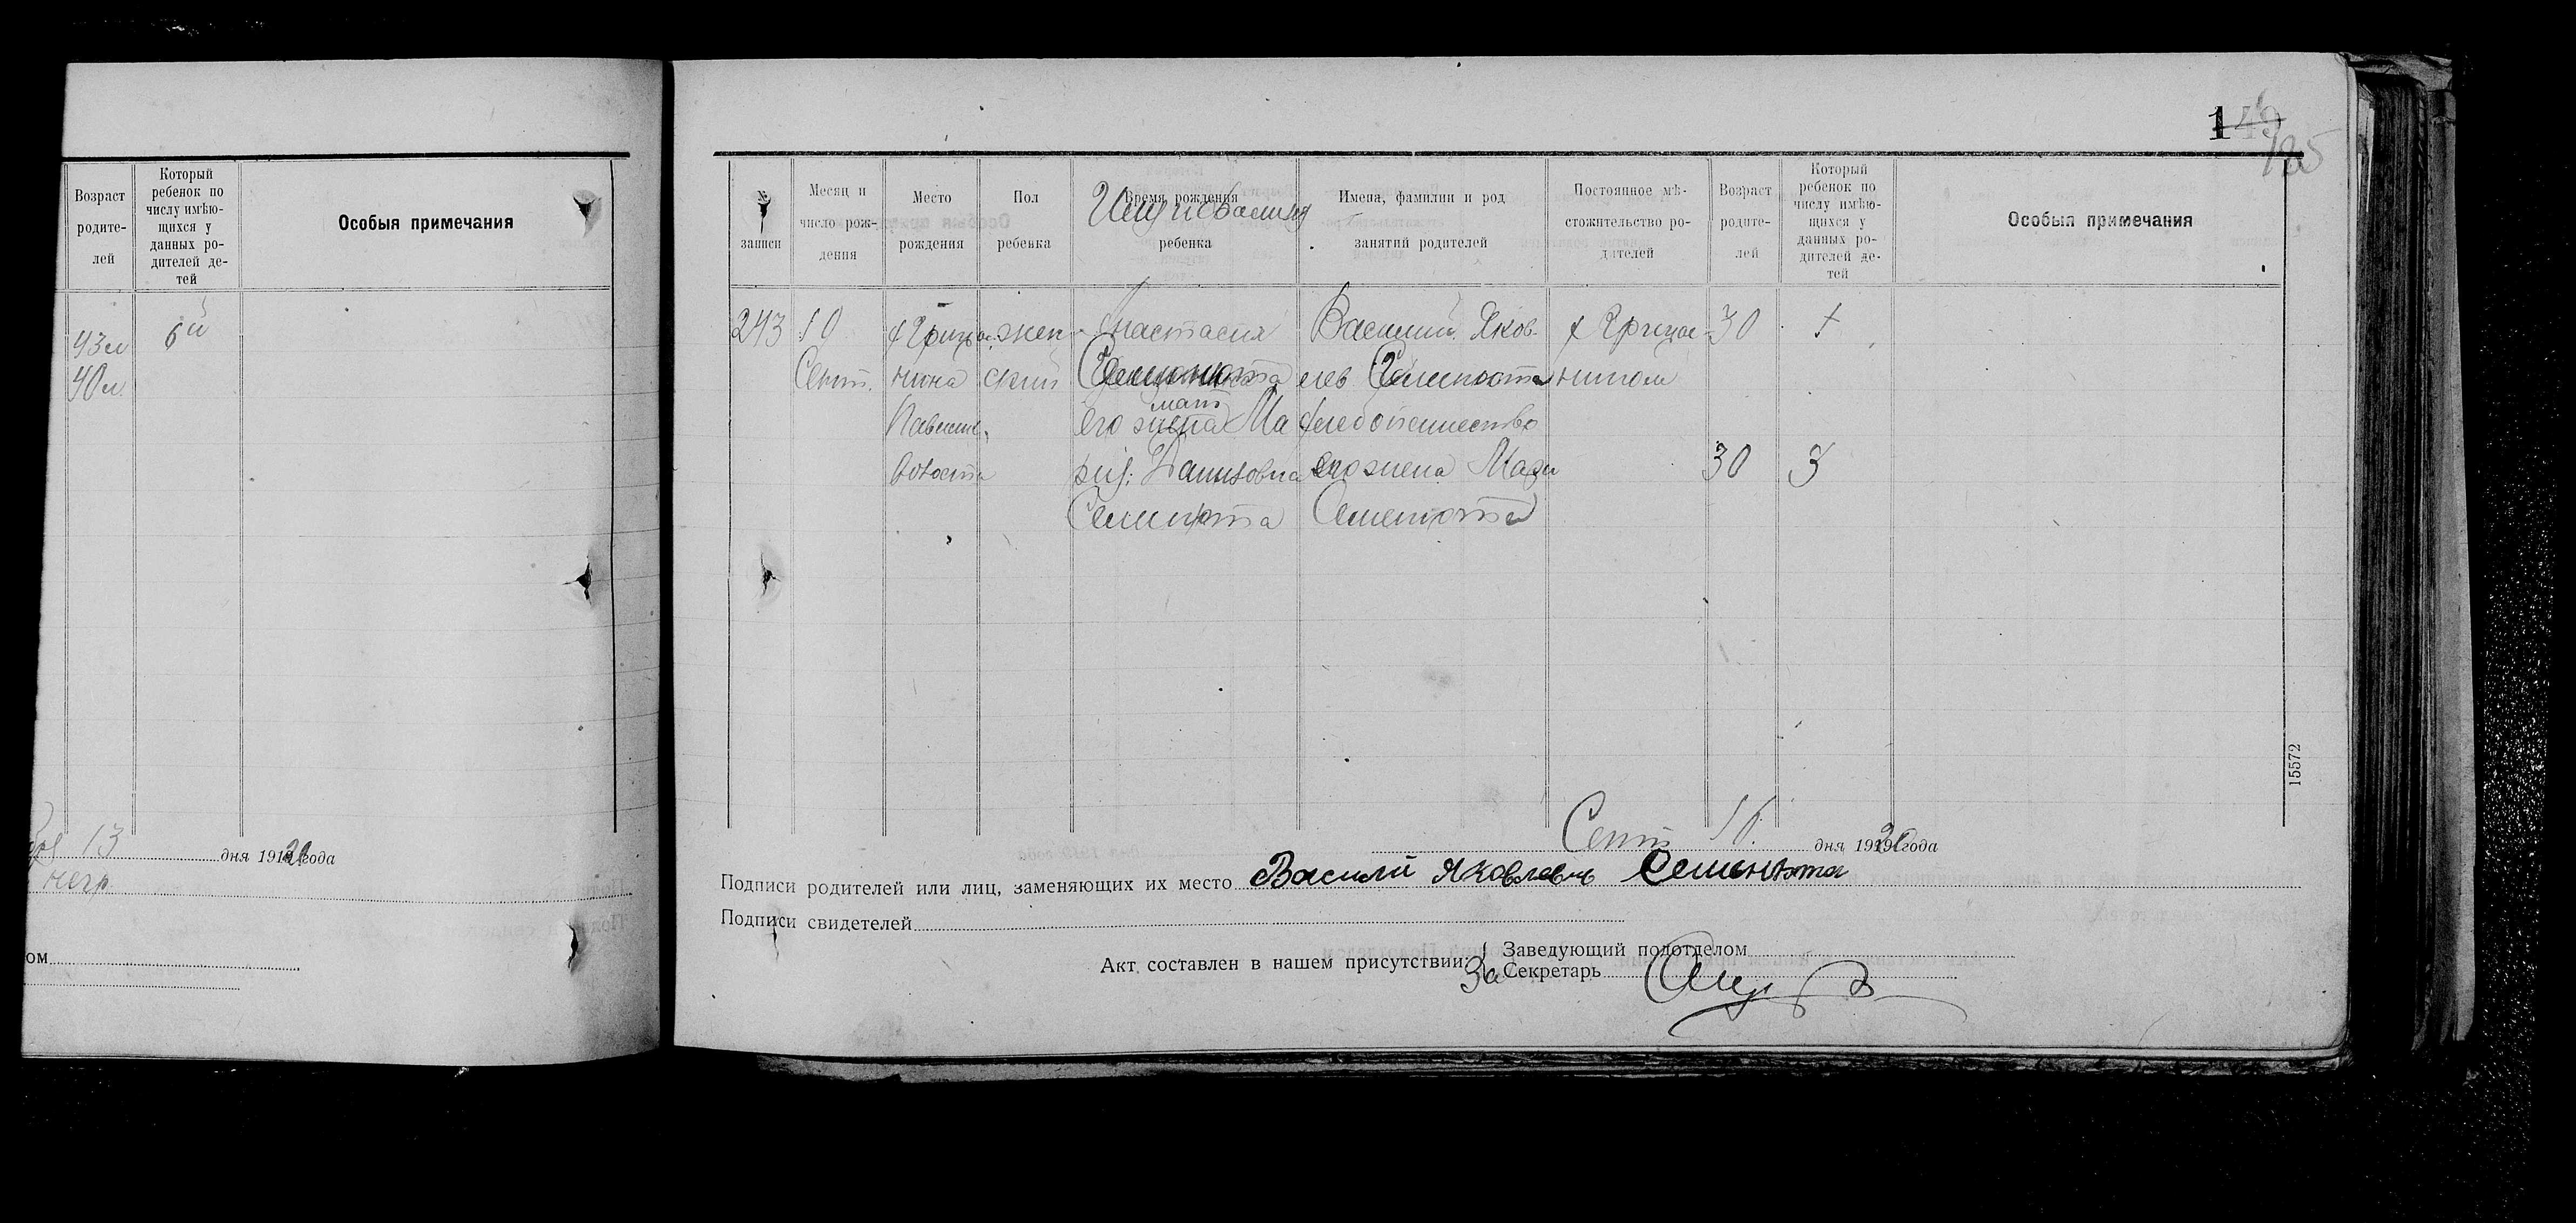 Возраст родите-лей
Который ребенок по числу имѣю-щихся у данных ро-дителей де-тей
Особыя примечания
43 л
6й
40 л.
13
дня 1920 года
негр.
ом
149
125
№ записи
Месяц и число рож-дения
Место рождения
Пол ребенка
Время рождения ребенка
Имя и фамилия
Имена, фамилии и род занятий родителей
Постоянное мѣ-стожительство ро-дителей
Возраст родите-лей
Который ребенок по числу имѣю-щихся у данных ро-дителей де-тей
Особыя примечания
243 10 жен- Анастасия Василий Яков- 30
Сент. нина ский Семенюта лев Семенюта
мать
его жена Ма
волости Даниловна его жена 30 3
Семенюта Семенюта
Сент 16 дня 1920 года
Подписи родителей или лиц, заменяющих их место Василий Яковлевич Семенюта
Подписи свидетелей
Акт составлен в нашем присутствии:
Заведующий подотделом
За Секретарь
15572